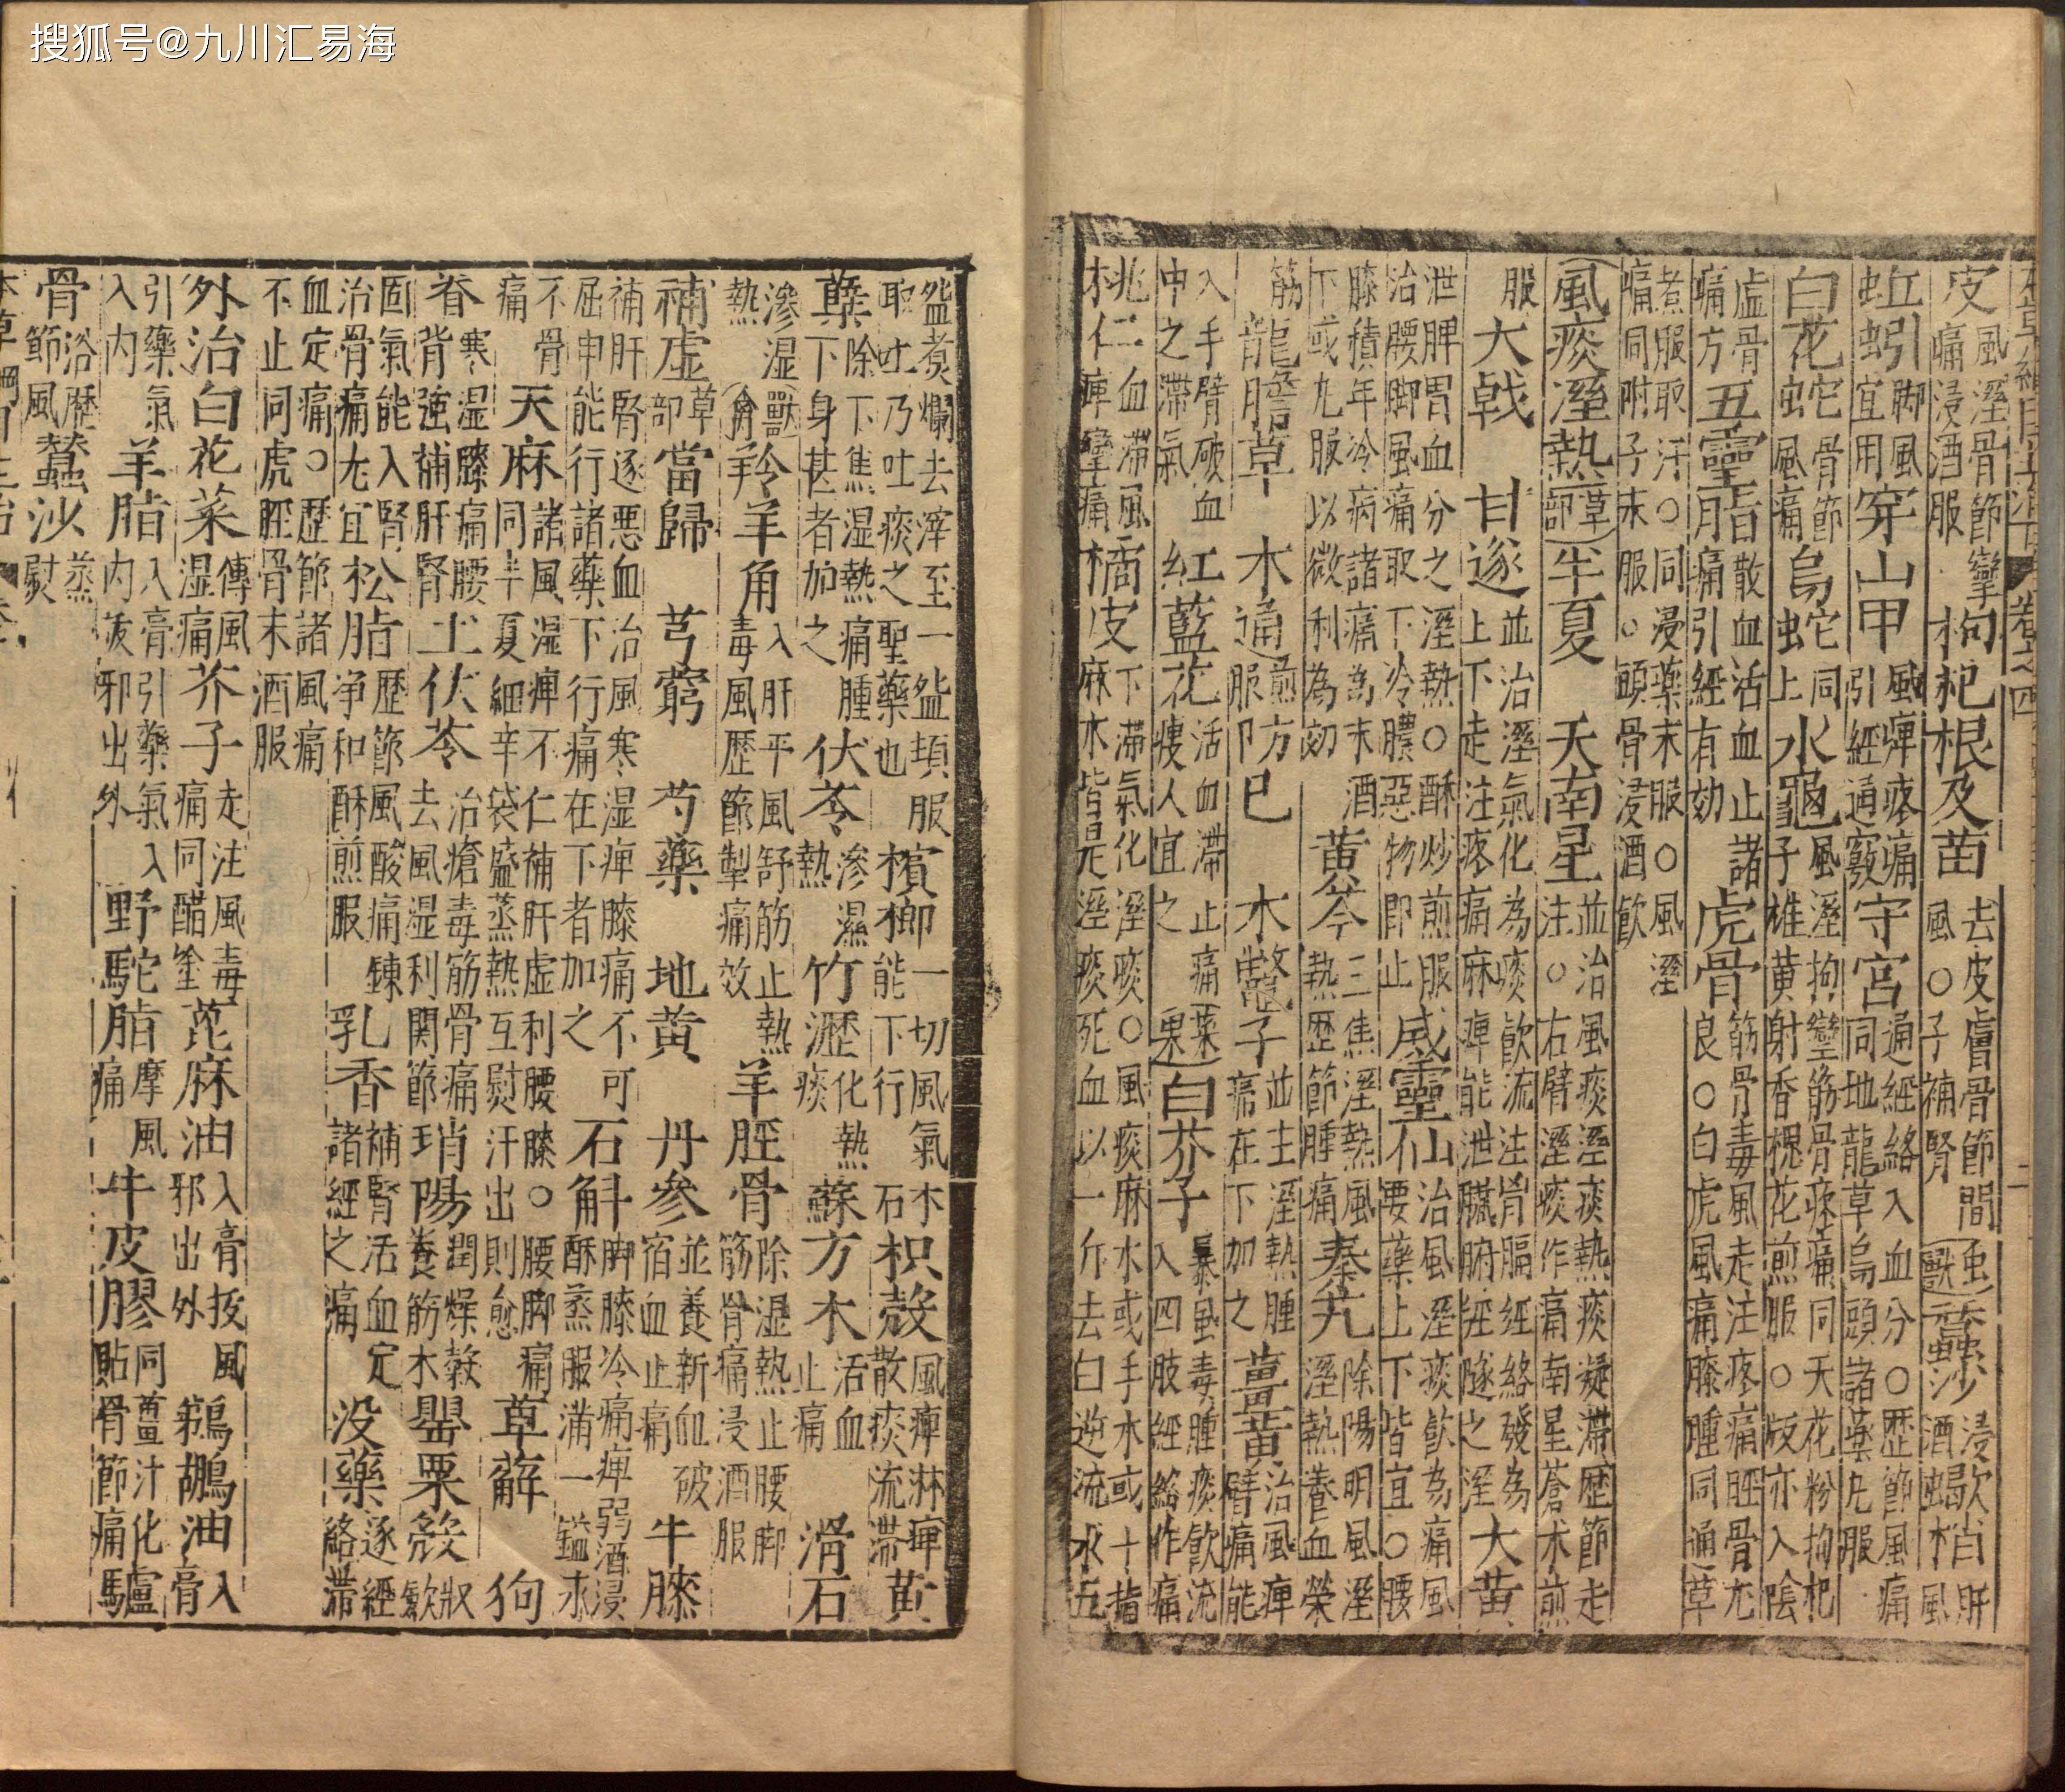 搜狐号@九川汇易海
皮風溼骨節攣痛浸酒服枸杞根及苗去皮膚骨節間風○子補腎蟲獸蠶沙浸酒蝎梢肝風
蚯蚓脚風宜用穿山甲風痺疼痛引經通竅守宮通經絡入血分○歷節風痛同地龍草烏頭諸藥丸服
白花蛇骨節風痛烏蛇同上水龜風溼拘攣筋骨疼痛同天花粉枸杞子椎黃射香槐花煎服○版亦入陰
虛骨痛方五靈脂散血活血止諸痛引經有効虎骨筋骨毒風走注疼痛脛骨尤良○白虎風痛膝腫同通草
煮服取汗○同浸藥末服○風溼痛同附子末服○頭骨浸酒飲
風痰溼熱草部半夏天南星並治風痰溼痰熱痰凝滯歷節走注○右臂溼痰作痛南星蒼术煎
服大戟甘遂並治溼氣化為痰飲流注胷膈經絡發為上下走注疼痛麻痺能泄臟腑經隧之溼大黃
泄脾胃血分之溼熱○酥炒煎服治腰脚風痛取下冷膿惡物即止威靈仙治風溼痰飲為痛風要藥上下皆宜○腰
膝積年冷病諸痛為末酒下或丸服以微利為効黃芩三焦溼熱風熱歷節腫痛秦艽除陽明風溼溼熱養血榮
筋龍膽草木通煎服防已木鼈子並主溼熱腫痛在下加之薑黃治風痺臂痛能
入手臂破血中之滯氣紅藍花活血滯止痛瘦人宜之菜果白芥子暴風毒腫痰飲流入四肢經絡作痛
桃仁血滯風痺攣痛橘皮下滯氣化溼痰○風痰麻木或手木或十指麻木皆是溼痰死血以一斤去白逆流水五
盌煮爛去滓至一盌頓服取吐乃吐痰之聖藥也檳榔一切風氣能下行木石枳殼風痺淋痺散痰流滯黃
蘗除下焦湿熱痛腫下身甚者加之伏苓滲濕熱竹瀝化熱痰蘇方木活血止痛滑石
滲湿熱獸禽羚羊角入肝平風舒筋止熱毒風歷節掣痛效羊脛骨除湿熱止腰脚筋骨痛浸酒服
補虛草部當歸芎藭芍藥地黄丹參並養新血破宿血止痛牛膝
補肝腎逐惡血治風寒湿痺膝痛不可屈申能行諸藥下行痛在下者加之石斛脚膝冷痛痺弱酒浸酥蒸服滿一鎰永
不骨痛天麻諸風湿痺不仁補肝虛利腰膝○腰脚痛同半夏細辛袋盛蒸熱互熨汗出則愈萆薢狗
脊寒湿膝痛腰背強補肝腎土伏苓治瘡毒筋骨痛去風湿利関節瑣陽潤燥養筋榖木罌粟殻收歛
固氣能入腎治骨痛尤宜松脂歷節風酸痛鍊净和酥煎服乳香補腎活血定諸經之痛没藥逐經絡滯
血定痛○歷節諸風痛不止同虎脛骨末酒服
外治白花菜傳風湿痛芥子走注風毒痛同醋塗蓖麻油入膏拔風邪出外鵜鶘油入膏
引藥氣入内羊脂入膏引藥氣入内拔邪出外野駝脂摩風痛牛皮膠同薑汁化貼骨節痛驢
骨浴歷節風蠶沙蒸熨